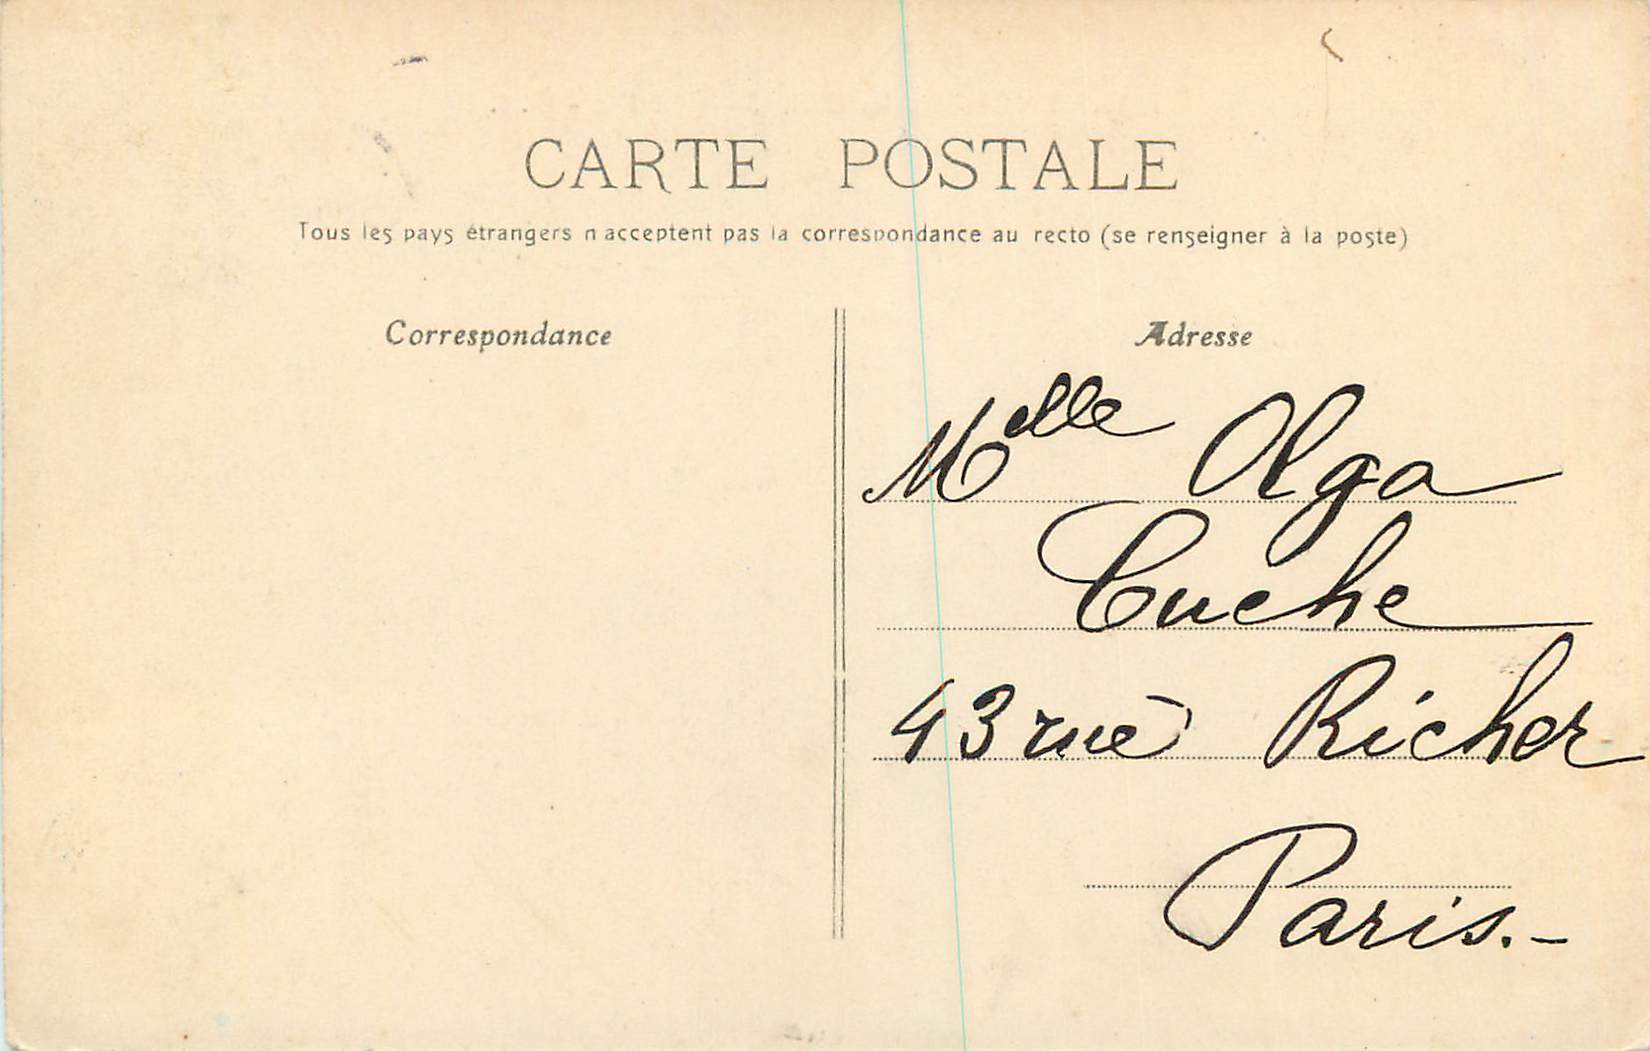 CARTE POSTALE
Tous les pays étrangers n'acceptent pas la correspondance au recto (se renseigner à la poste)
Correspondance
Adresse
Melle Olga
Cuche
43 rue Richer
Paris.-